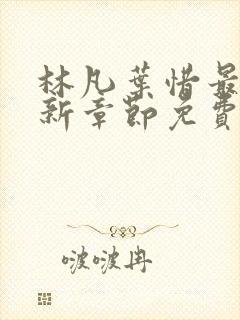 林凡葉惜最
新章節免費
啵啵冉